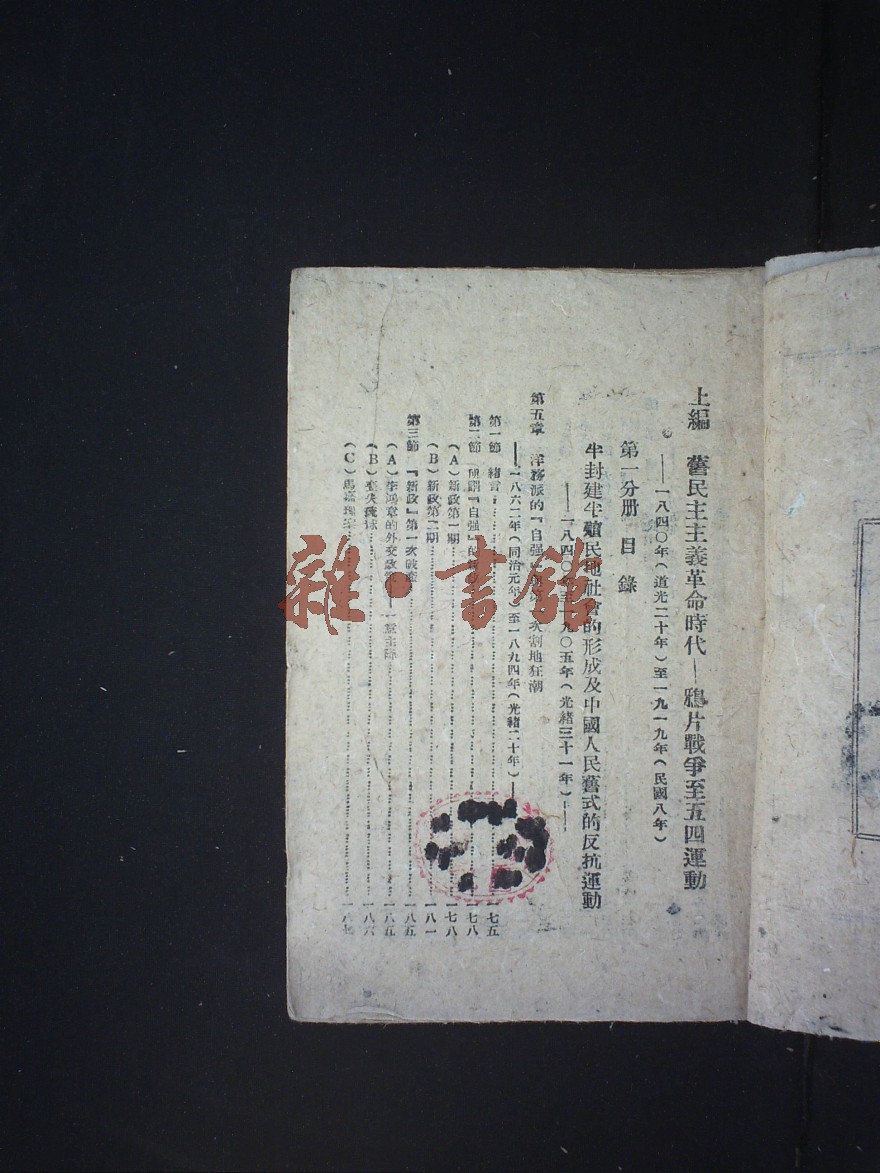 上編　舊民主主義革命時代—鴉片戰爭至五四運動
——一八四〇年(道光二十年)至一九一九年(民國八年)
第一分册　目錄
半封建半殖民地社會的形成及中國人民舊式的反抗運動
——一八四〇年至一九〇五年(光緒三十一年)——
第五章　洋務派的『自强』 次割地狂潮
——一八六二年(同治元年)至一八九四年(光緒二十年)——
第一節　緒言 一七五
第二節　所謂『自强』的 一七八
(A)新政第一期 一七八
(B)新政第二期 一八一
第三節　『新政』第一次破產 一八五
(A)李鴻章的外交政策 一八五
(B)喪失琉球 一八六
(C)馬嘉理 一八七
雜·書館